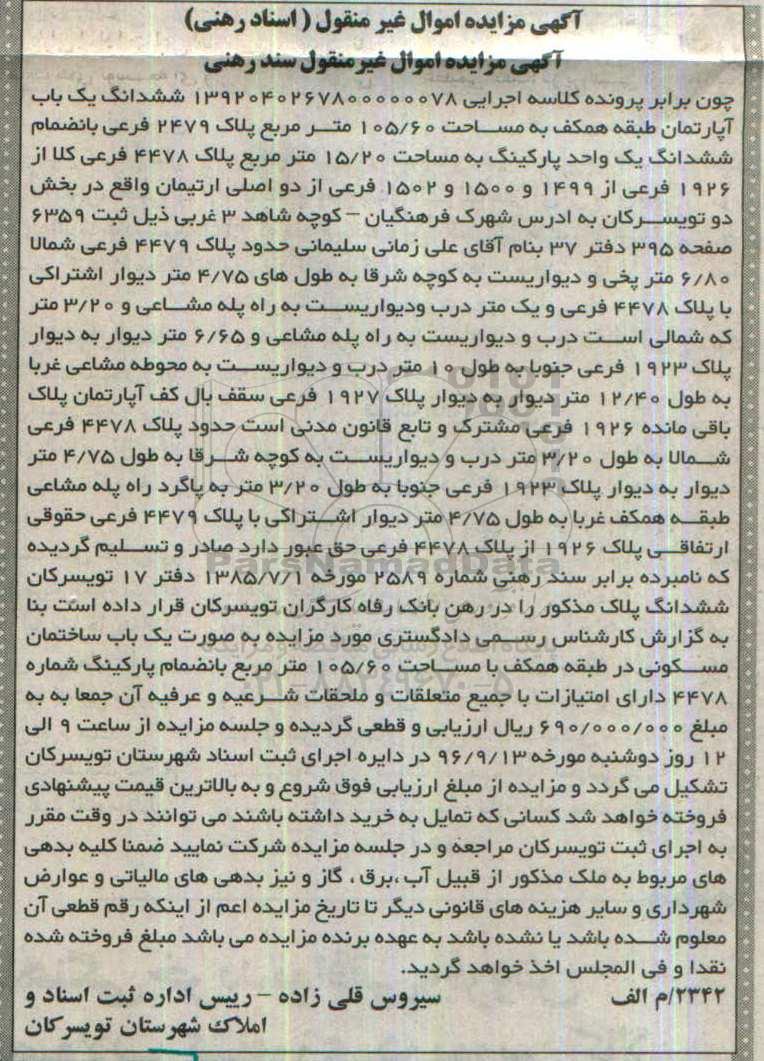 آگهی مزایده اموال غیر منقول ( اسناد رهنی)
آگهی مزایده اموال غیرمنقول سند رهنی
چون برابر پرونده کلاسه اجرایی ۱۳۹۲۰۴۰۲۶۷۸۰۰۰۰۰۰۷۸ ششدانگ یک باب
آپارتمان طبقه همکف به مساحت ۱۰۵/۶۰ متر مربع پلاک ۲۴۷۹ فرعی بانضمام
ششدانگ یک واحد پارکینگ به مساحت ۱۵/۲۰ متر مربع پلاک ۴۴۷۸ فرعی کلا از
۱۹۲۶ فرعی از ۱۴۹۹ و ۱۵۰۰ و ۱۵۰۲ فرعی از دو اصلی ارتیمان واقع در بخش
دو تویسرکان به ادرس شهرک فرهنگیان – کوچه شاهد ۳ غربی ذیل ثبت ۶۳۵۹
صفحه ۳۹۵ دفتر ۳۷ بنام آقای علی زمانی سلیمانی حدود پلاک ۴۴۷۹ فرعی شمالا
۶/۸۰ متر پخی و دیواریست به کوچه شرقا به طول های ۴/۷۵ متر دیوار اشتراکی
با پلاک ۴۴۷۸ فرعی و یک متر درب ودیواریست به راه پله مشاعی و ۳/۲۰ متر
که شمالی است درب و دیواریست به راه پله مشاعی و ۶/۶۵ متر دیوار به دیوار
پلاک ۱۹۲۳ فرعی جنوبا به طول ۱۰ متر درب و دیواریست به محوطه مشاعی غربا
به طول ۱۲/۴۰ متر دیوار به دیوار پلاک ۱۹۲۷ فرعی سقف بال کف آپارتمان پلاک
باقی مانده ۱۹۲۶ فرعی مشترک و تابع قانون مدنی است حدود پلاک ۴۴۷۸ فرعی
شمالا به طول ۳/۲۰ متر درب و دیواریست به کوچه شرقا به طول ۴/۷۵ متر
دیوار به دیوار پلاک ۱۹۲۳ فرعی جنوبا به طول ۳/۲۰ متر به پاگرد راه پله مشاعی
طبقه همکف غربا به طول ۴/۷۵ متر دیوار اشتراکی با پلاک ۴۴۷۹ فرعی حقوقی
ارتفاقی پلاک ۱۹۲۶ از پلاک ۴۴۷۸ فرعی حق عبور دارد صادر و تسلیم گردیده
که نامبرده برابر سند رهنی شماره ۲۵۸۹ مورخه ۱۳۸۵/۷/۱ دفتر ۱۷ تویسرکان
ششدانگ پلاک مذکور را در رهن بانک رفاه کارگران تویسرکان قرار داده است بنا
به گزارش کارشناس رسمی دادگستری مورد مزایده به صورت یک باب ساختمان
مسکونی در طبقه همکف با مساحت ۱۰۵/۶۰ متر مربع بانضمام پارکینگ شماره
۴۴۷۸ دارای امتیازات با جمیع متعلقات و ملحقات شرعیه و عرفیه آن جمعا به به
مبلغ ۶۹۰/۰۰۰/۰۰۰ ریال ارزیابی و قطعی گردیده و جلسه مزایده از ساعت ۹ الی
۱۲ روز دوشنبه مورخه ۹۶/۹/۱۳ در دایره اجرای ثبت اسناد شهرستان تویسرکان
تشکیل می گردد و مزایده از مبلغ ارزیابی فوق شروع و به بالاترین قیمت پیشنهادی
فروخته خواهد شد کسانی که تمایل به خرید داشته باشند می توانند در وقت مقرر
به اجرای ثبت تویسرکان مراجعه و در جلسه مزایده شرکت نمایید ضمنا کلیه بدهی
های مربوط به ملک مذکور از قبیل آب ،برق ، گاز و نیز بدهی های مالیاتی و عوارض
شهرداری و سایر هزینه های قانونی دیگر تا تاریخ مزایده اعم از اینکه رقم قطعی آن
معلوم شده باشد یا نشده باشد به عهده برنده مزایده می باشد مبلغ فروخته شده
نقدا و فی المجلس اخذ خواهد گردید.
۲۳۴۲/م الف سیروس قلی زاده – رییس اداره ثبت اسناد و
املاک شهرستان تویسرکان
ParsNamadData